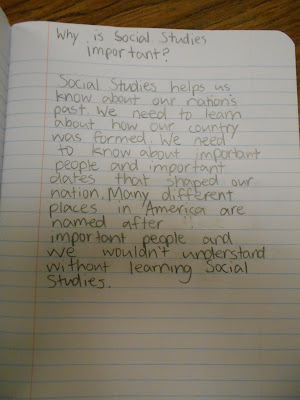 Why is Social Studies
important?
Social Studies helps us
know about our nation's
past. We need to learn
about how our country
was formed. We need
to know about important
people and important
dates that shaped our
nation. Many different
places in America are
named after
important people and
we wouldn't understand
without learning Social
Studies.